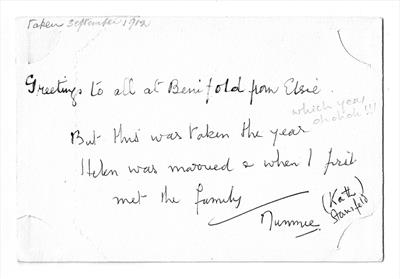 Taken September 1912
Greetings to all at Benifold from Elsie.
which year
ohohoh!!!
But this was taken the year
Helen was married & when I first
met the family
Nunnie.
(Kate
Stansfeld)